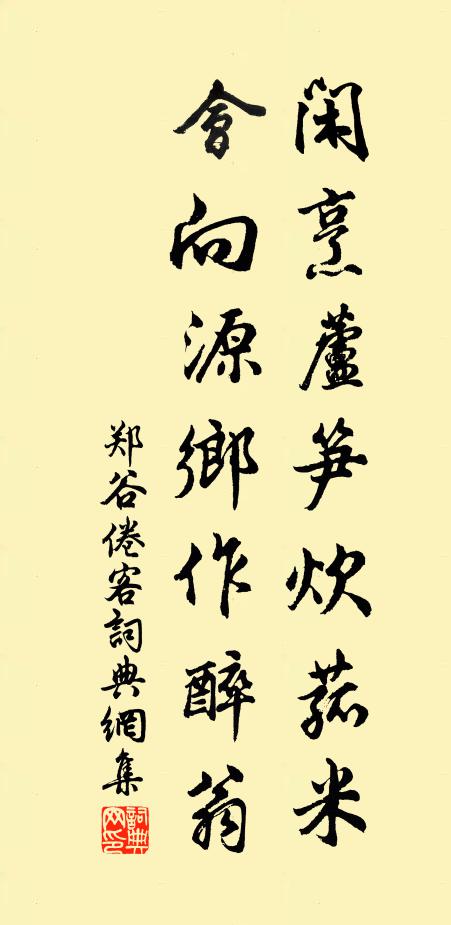 閑烹蘆笋炊菰米
會向源鄉作醉翁
郑谷倦客詞典網集
詞典網印